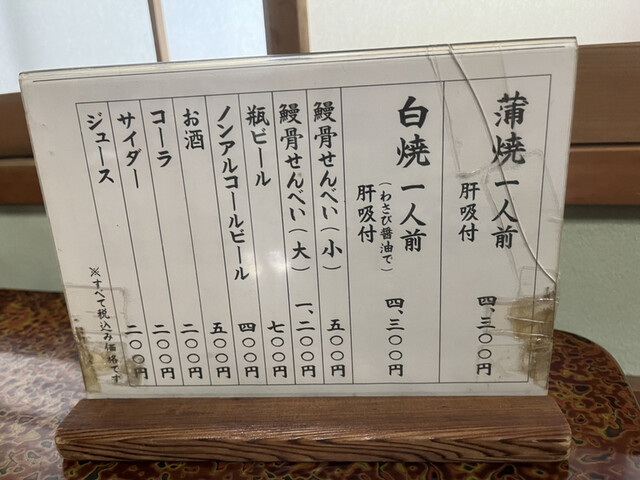 蒲焼 一人前
肝吸付
四、三〇〇円
白焼 一人前
(わさび醤油で)
肝吸付
四、三〇〇円
鰻骨せんべい(小) 五〇〇円
鰻骨せんべい(大) 一、二〇〇円
瓶ビール 七〇〇円
ノンアルコールビール 四〇〇円
お酒 五〇〇円
コーラ 二〇〇円
サイダー 二〇〇円
ジュース 二〇〇円
※すべて税込み価格です